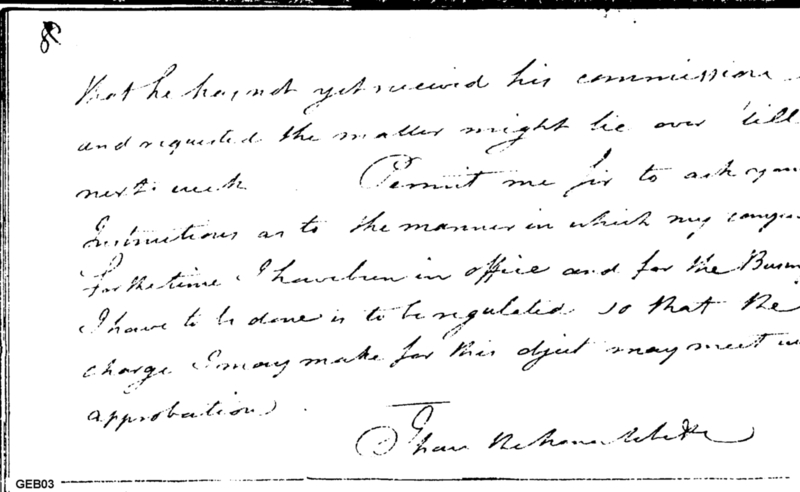 that he has not yet received his commission
and requested the matter might lie over 'till
next week Permit me Sir to ask your
Instructions as to the manner in which my
for the time I have been in office and for the
I have to be done is to be regulated so that the
charge I may make for this object may meet
approbation.
I have the honor to be &c
GEB03